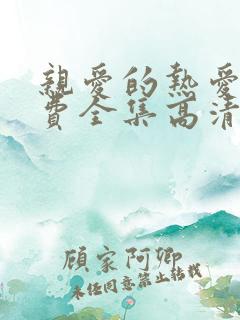 親愛的熱愛
費全集高清
顧家阿卿
未经同意禁止转载